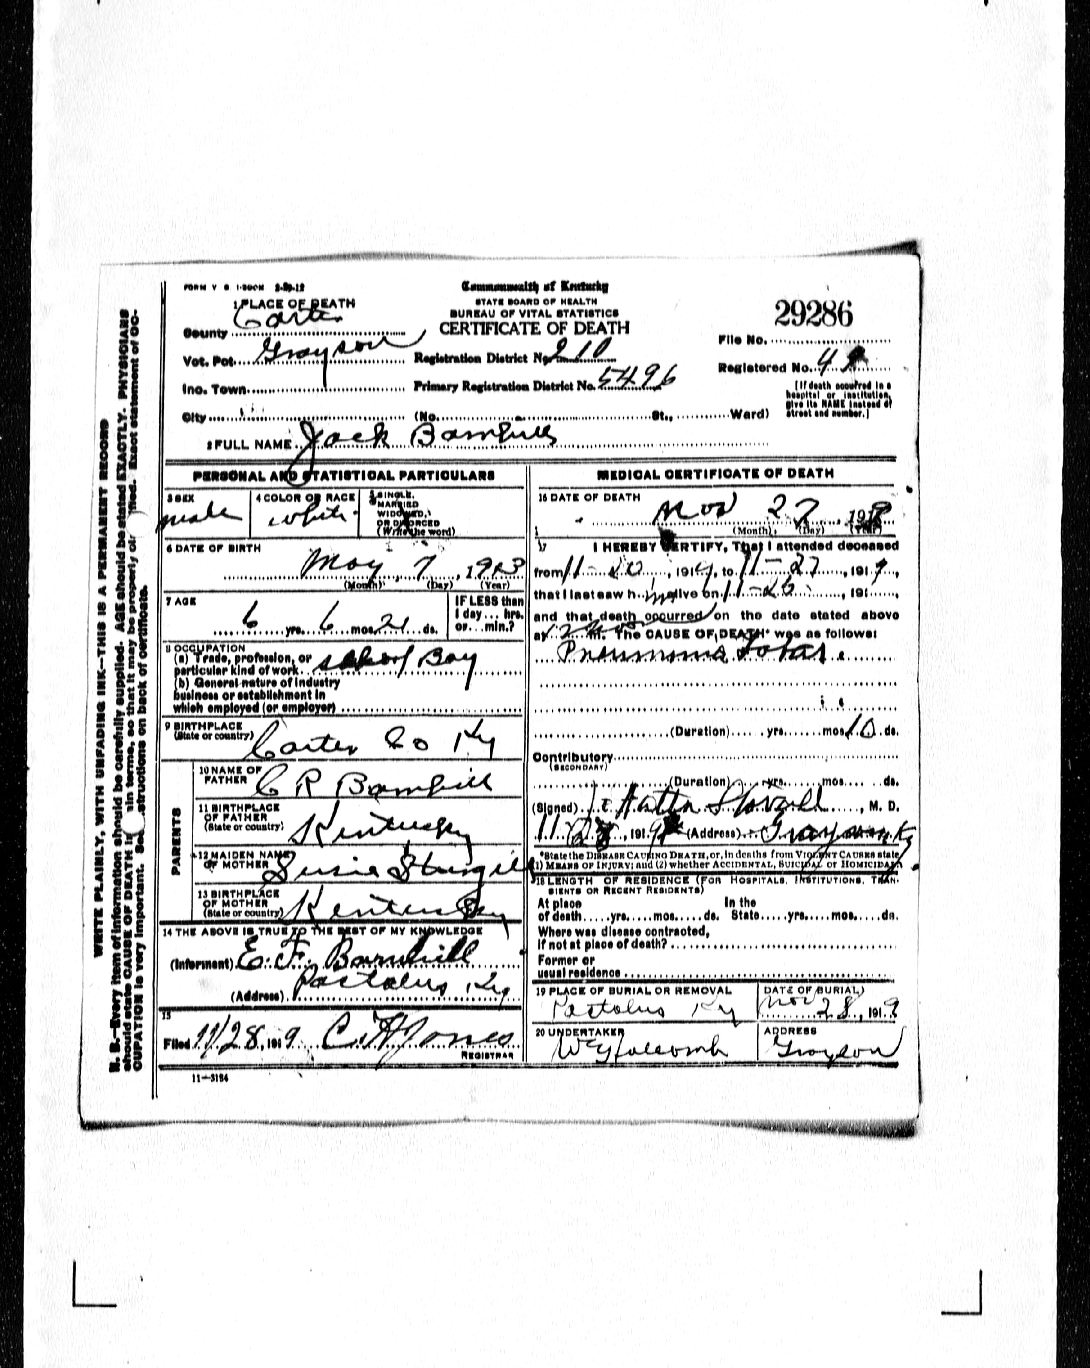 FORM V S 1-500M 3-29-12
Commonwealth of Kentucky
STATE BOARD OF HEALTH
BUREAU OF VITAL STATISTICS
CERTIFICATE OF DEATH
29286
File No.
Registered No. 4
[If death occurred in a
hospital or institution,
give its NAME instead of
street and number.]
1 PLACE OF DEATH
County Carter
Vot. Pct. Grayson Registration District No. 210
Inc. Town Primary Registration District No. 5496
City (No. St., Ward)
2 FULL NAME Jack Barnhill
PERSONAL AND STATISTICAL PARTICULARS
3 SEX male
4 COLOR OR RACE white
5 SINGLE,
MARRIED
WIDOWED,
OR DIVORCED
(Write the word)
6 DATE OF BIRTH
May 7, 1913
(Month) (Day) (Year)
7 AGE
6 yrs. 6 mos. 21 ds.
IF LESS than
1 day... hrs.
or... min.?
8 OCCUPATION
(a) Trade, profession, or
particular kind of work school Boy
(b) General nature of industry
business or establishment in
which employed (or employer)
9 BIRTHPLACE
(State or country) Carter Co Ky
PARENTS
10 NAME OF
FATHER C R Barnhill
11 BIRTHPLACE
OF FATHER
(State or country) Kentucky
12 MAIDEN NAME
OF MOTHER Susie Sturgill
13 BIRTHPLACE
OF MOTHER
(State or country) Kentucky
14 THE ABOVE IS TRUE TO THE BEST OF MY KNOWLEDGE
(Informant) E. F. Barnhill
(Address) Pactolus Ky
15
Filed 11/28, 1919 C. H. Jones
REGISTRAR
11—3184
MEDICAL CERTIFICATE OF DEATH
16 DATE OF DEATH
Nov 27, 191
(Month) (Day) (Year)
17 I HEREBY CERTIFY, That I attended deceased
from 11-20, 191, to 11-27, 1919,
that I last saw h im alive on 11-26, 191,
and that death occurred on the date stated above
at M. The CAUSE OF DEATH* was as follows:
Pneumonia Lobar
(Duration) yrs. mos. 10 ds.
Contributory
(SECONDARY)
(Duration) yrs. mos. ds.
(Signed), M. D.
11/28, 1919 (Address) Grayson Ky
*State the DISEASE CAUSING DEATH, or, in deaths from VIOLENT CAUSES state
(1) MEANS OF INJURY; and (2) whether ACCIDENTAL, SUICIDAL or HOMICIDAL
18 LENGTH OF RESIDENCE (FOR HOSPITALS, INSTITUTIONS, TRAN-
SIENTS OR RECENT RESIDENTS)
At place In the
of death yrs. mos. ds. State yrs. mos. ds.
Where was disease contracted,
If not at place of death?
Former or
usual residence
19 PLACE OF BURIAL OR REMOVAL
Pactolus Ky
DATE OF BURIAL
Nov 28, 1919
20 UNDERTAKER
Holcomb
ADDRESS
Grayson
WRITE PLAINLY, WITH UNFADING INK—THIS IS A PERMANENT RECORD
N. B.—Every item of information should be carefully supplied. AGE should be stated EXACTLY. PHYSICIANS
should state CAUSE OF DEATH in plain terms, so that it may be properly classified. Exact statement of OC-
CUPATION is very important. See instructions on back of certificate.